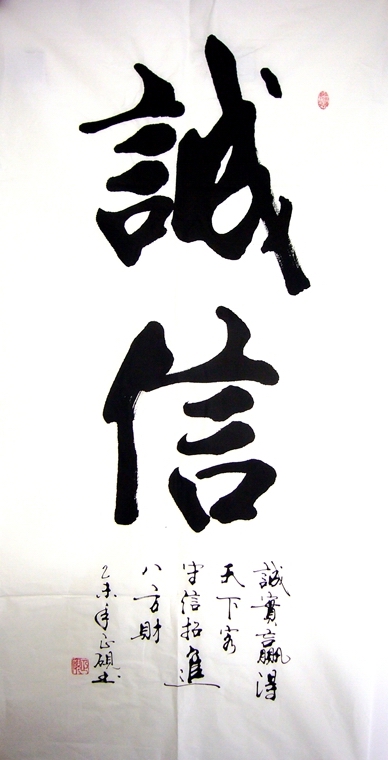 誠信
誠實贏得
天下客
守信招進
八方財
乙未年正硯书